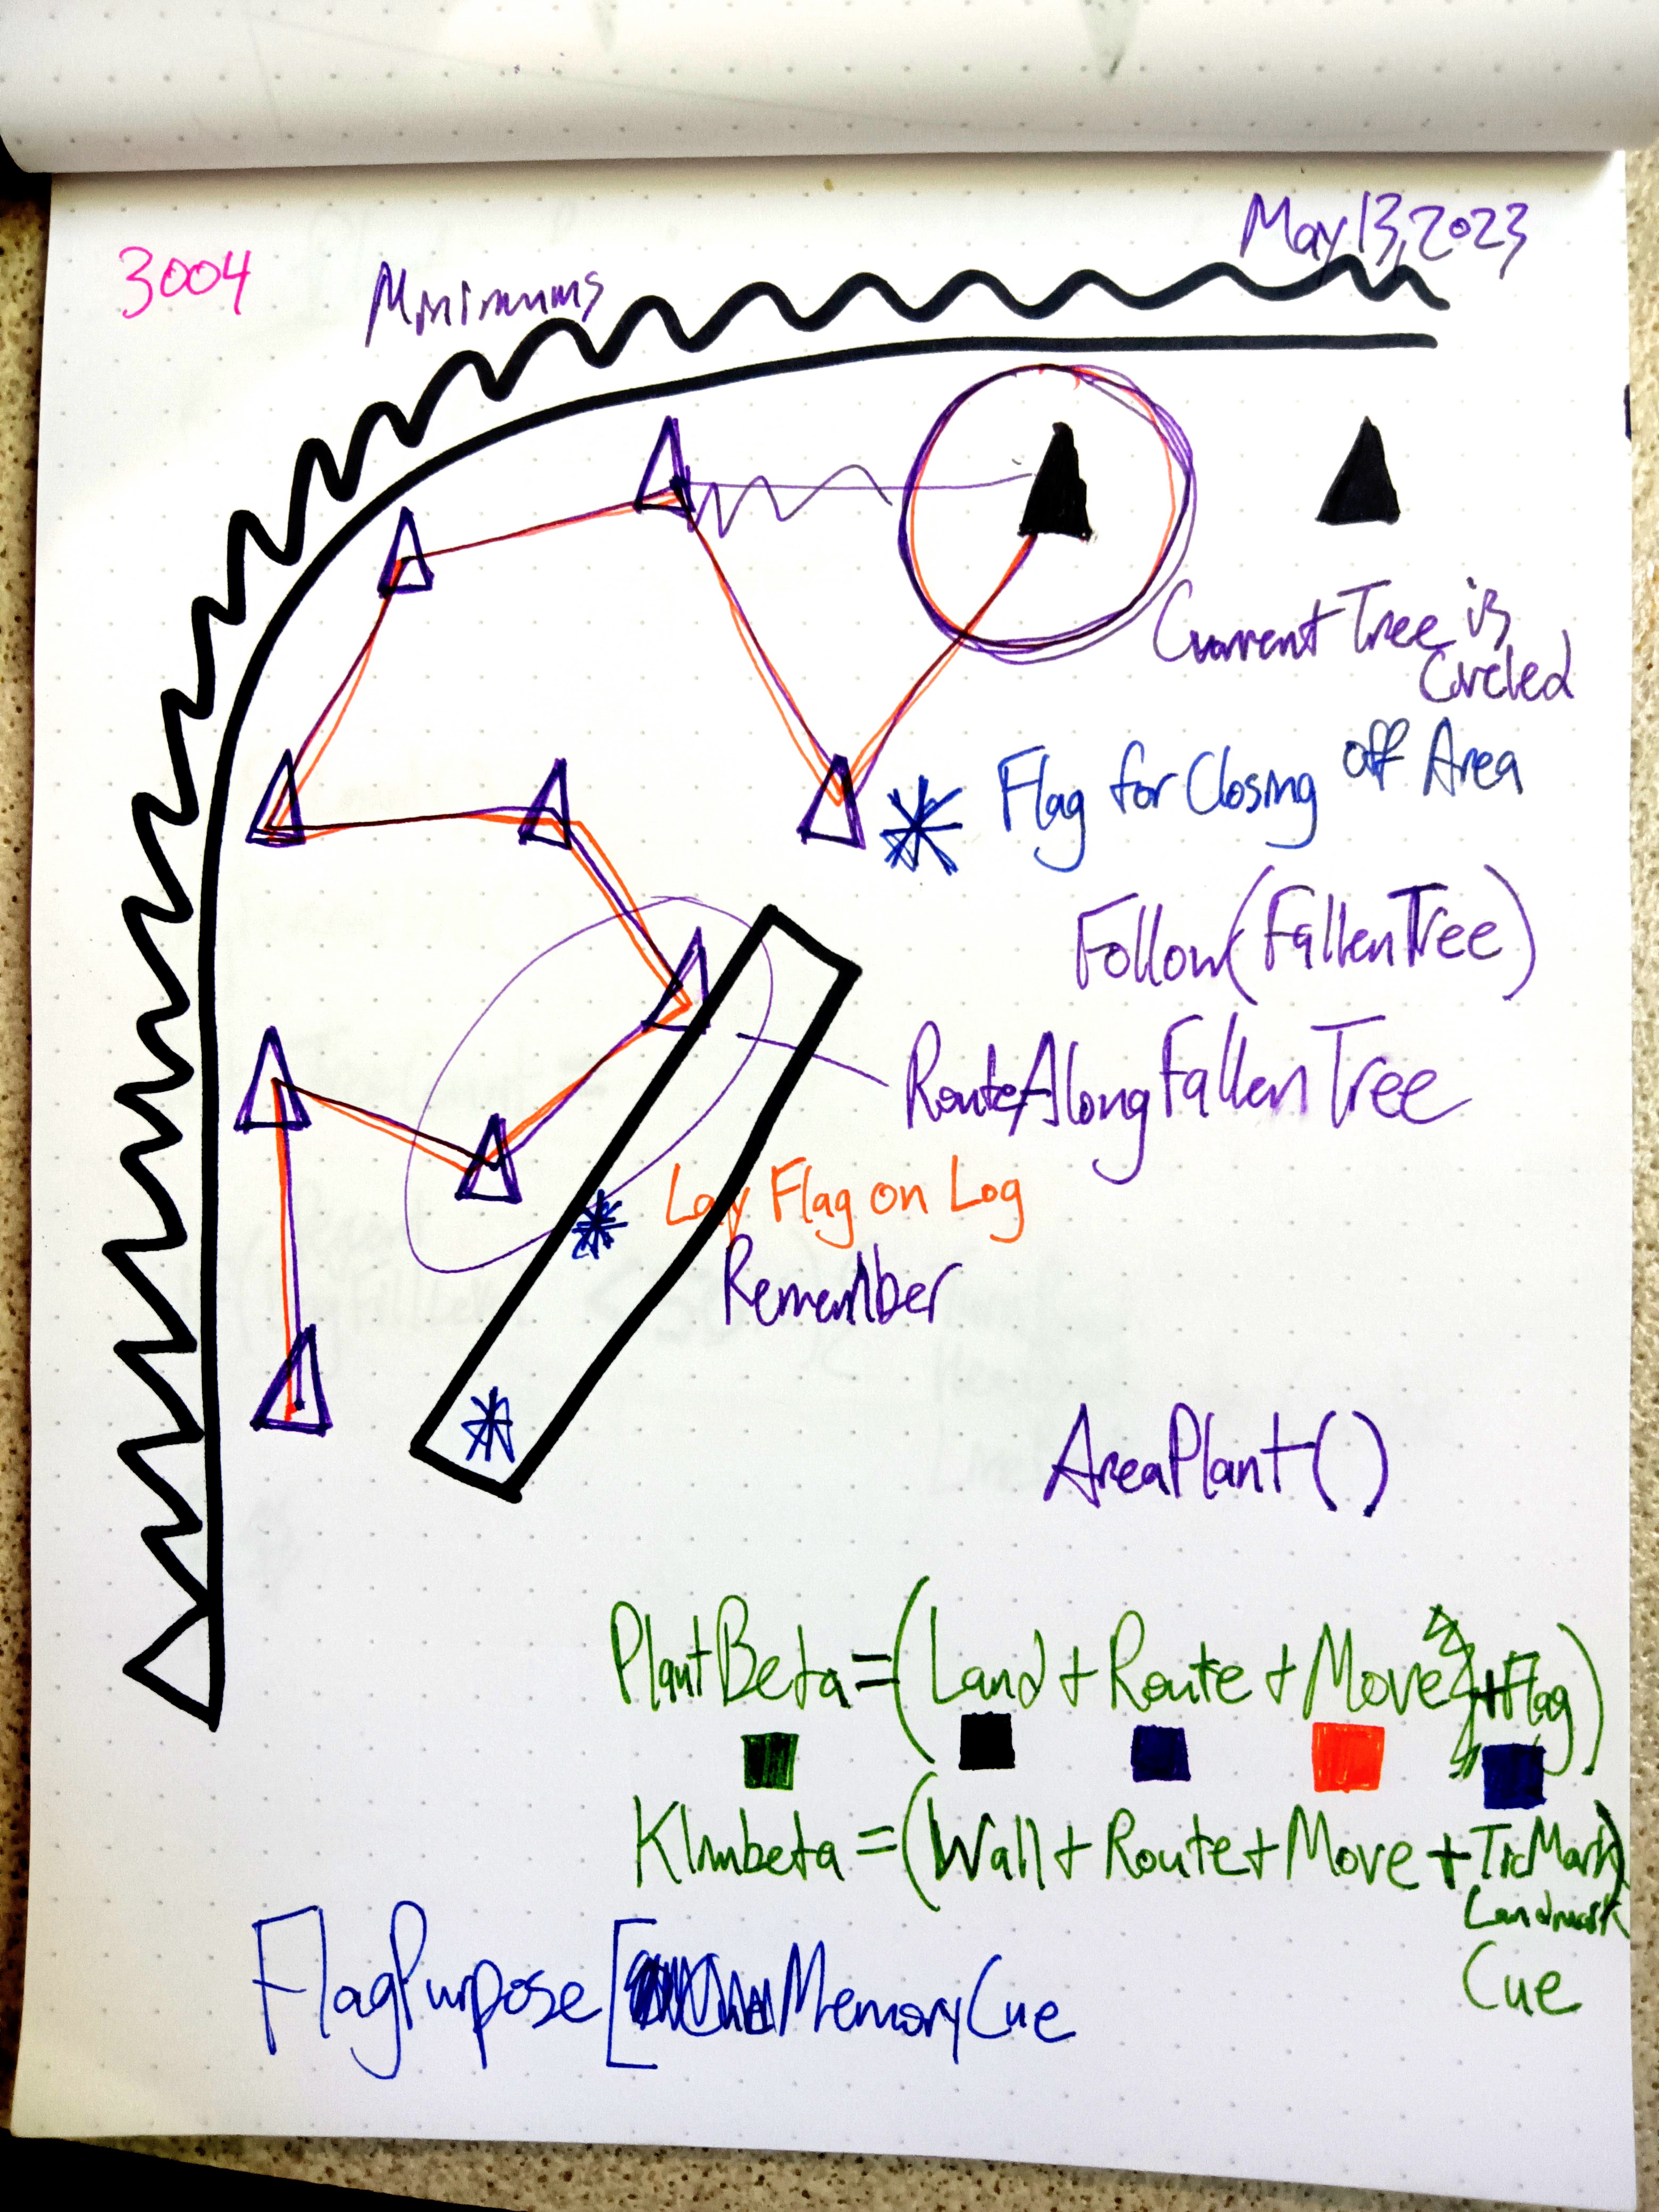 3004
May 13, 2023
Minimums
Current Tree is
Circled
Flag for Closing off Area
Follow(FallenTree)
RouteAlongFallenTree
Lay Flag on Log
Remember
AreaPlant()
PlantBeta=(Land + Route + Move +Flag)
Klmbeta =(Wall + Route + Move + TicMark)
Landmark
Cue
FlagPurpose[MemoryCue